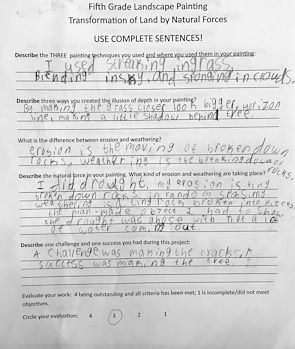 Fifth Grade Landscape Painting
Transformation of Land by Natural Forces
USE COMPLETE SENTENCES!
Describe the THREE painting techniques you used and where you used them in your painting:
I used streaking in grass,
Blending in sky, and sponging in clouds.
Describe three ways you created the illusion of depth in your painting?
By making the grass closer look bigger, horizon
line, making a little shadow behind tree
What is the difference between erosion and weathering?
erosion is the moving of broken down
rocks, weathering is the breaking down of
rocks.
Describe the natural force in your painting. What kind of erosion and weathering are taking place?
I did drought, my erosion is tiny
broken down rock in random spots, my
weathering is a tiny rock broken into pieces
the man-made object I had to show
the drought was a hose with little
of water coming out.
Describe one challenge and one success you had during this project:
A challenge was making the cracks, A
success was making the tree.
Evaluate your work: 4 being outstanding and all criteria has been met; 1 is incomplete/did not meet
objectives.
Circle your evaluation: 4 3 2 1